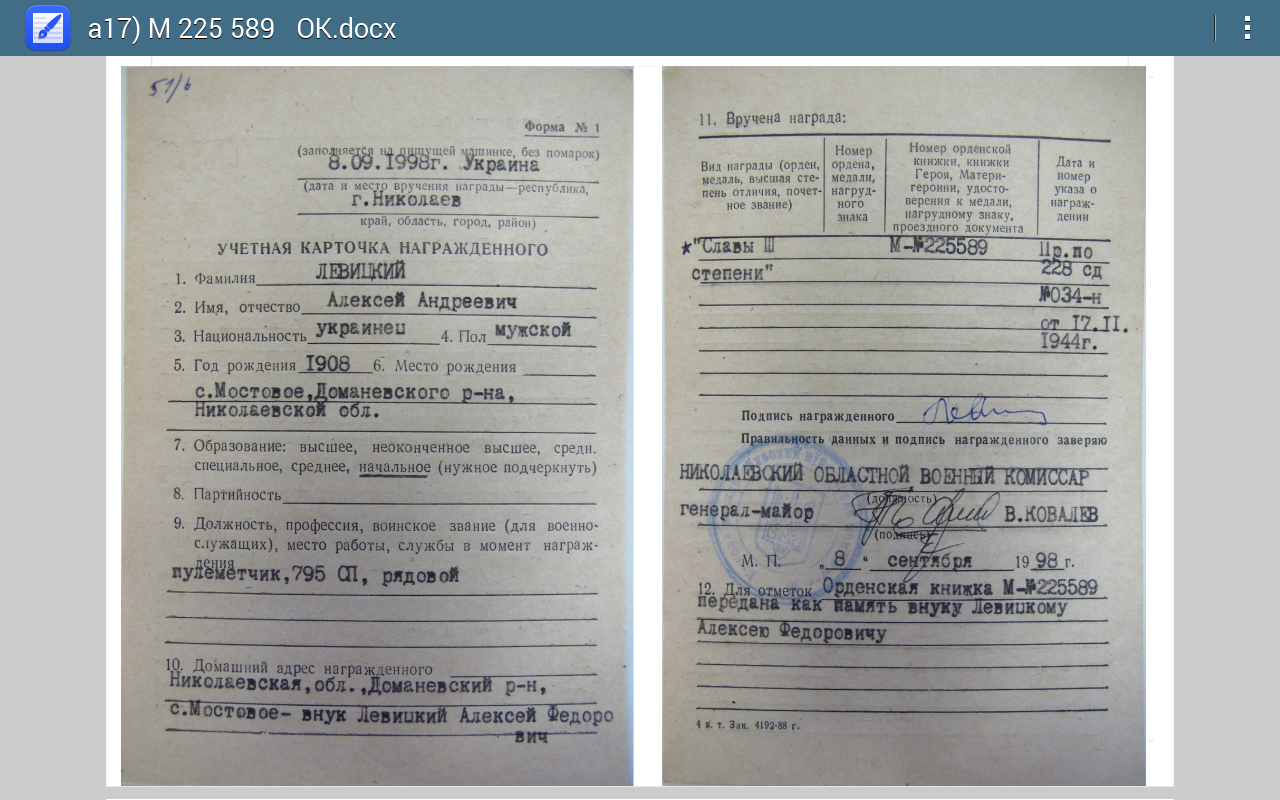 a17) M 225 589 OK.docx
51/6
Форма № 1
(заполняется на пишущей машинке, без помарок)
8.09.1998г. Украина
(дата и место вручения награды—республика,
г.Николаев
край, область, город, район)
УЧЕТНАЯ КАРТОЧКА НАГРАЖДЕННОГО
1. Фамилия ЛЕВИЦКИЙ
2. Имя, отчество Алексей Андреевич
3. Национальность украинец 4. Пол мужской
5. Год рождения 1908 6. Место рождения
с.Мостовое,Доманевского р-на,
Николаевской обл.
7. Образование: высшее, неоконченное высшее, средн.
специальное, среднее, начальное (нужное подчеркнуть)
8. Партийность
9. Должность, профессия, воинское звание (для военно-
служащих), место работы, службы в момент награж-
дения
пулеметчик,795 СП, рядовой
10. Домашний адрес награжденного
Николаевская,обл.,Доманевский р-н,
с.Мостовое- внук Левицкий Алексей Федоро
вич
11. Вручена награда:
Вид награды (орден,
медаль, высшая сте-
пень отличия, почет-
ное звание)
Номер
ордена,
медали,
нагруд-
ного
знака
Номер орденской
книжки, книжки
Героя, Матери-
героини, удосто-
верения к медали,
нагрудному знаку,
проездного документа
Дата и
номер
указа о
награж-
дении
"Славы Ш М-№225589 Пр.по
степени" 228 сд
№034-н
от 17.II.
1944г.
Подпись награжденного
Правильность данных и подпись награжденного заверяю
НИКОЛАЕВСКИЙ ОБЛАСТНОЙ ВОЕННЫЙ КОМИССАР
(должность)
генерал-майор В.КОВАЛЕВ
(подпись)
М. П. „8" сентября 1998 г.
12. Для отметок Орденская книжка М-№225589
передана как память внуку Левицкому
Алексею Федоровичу
4 и. т. Зак. 4192-88 г.